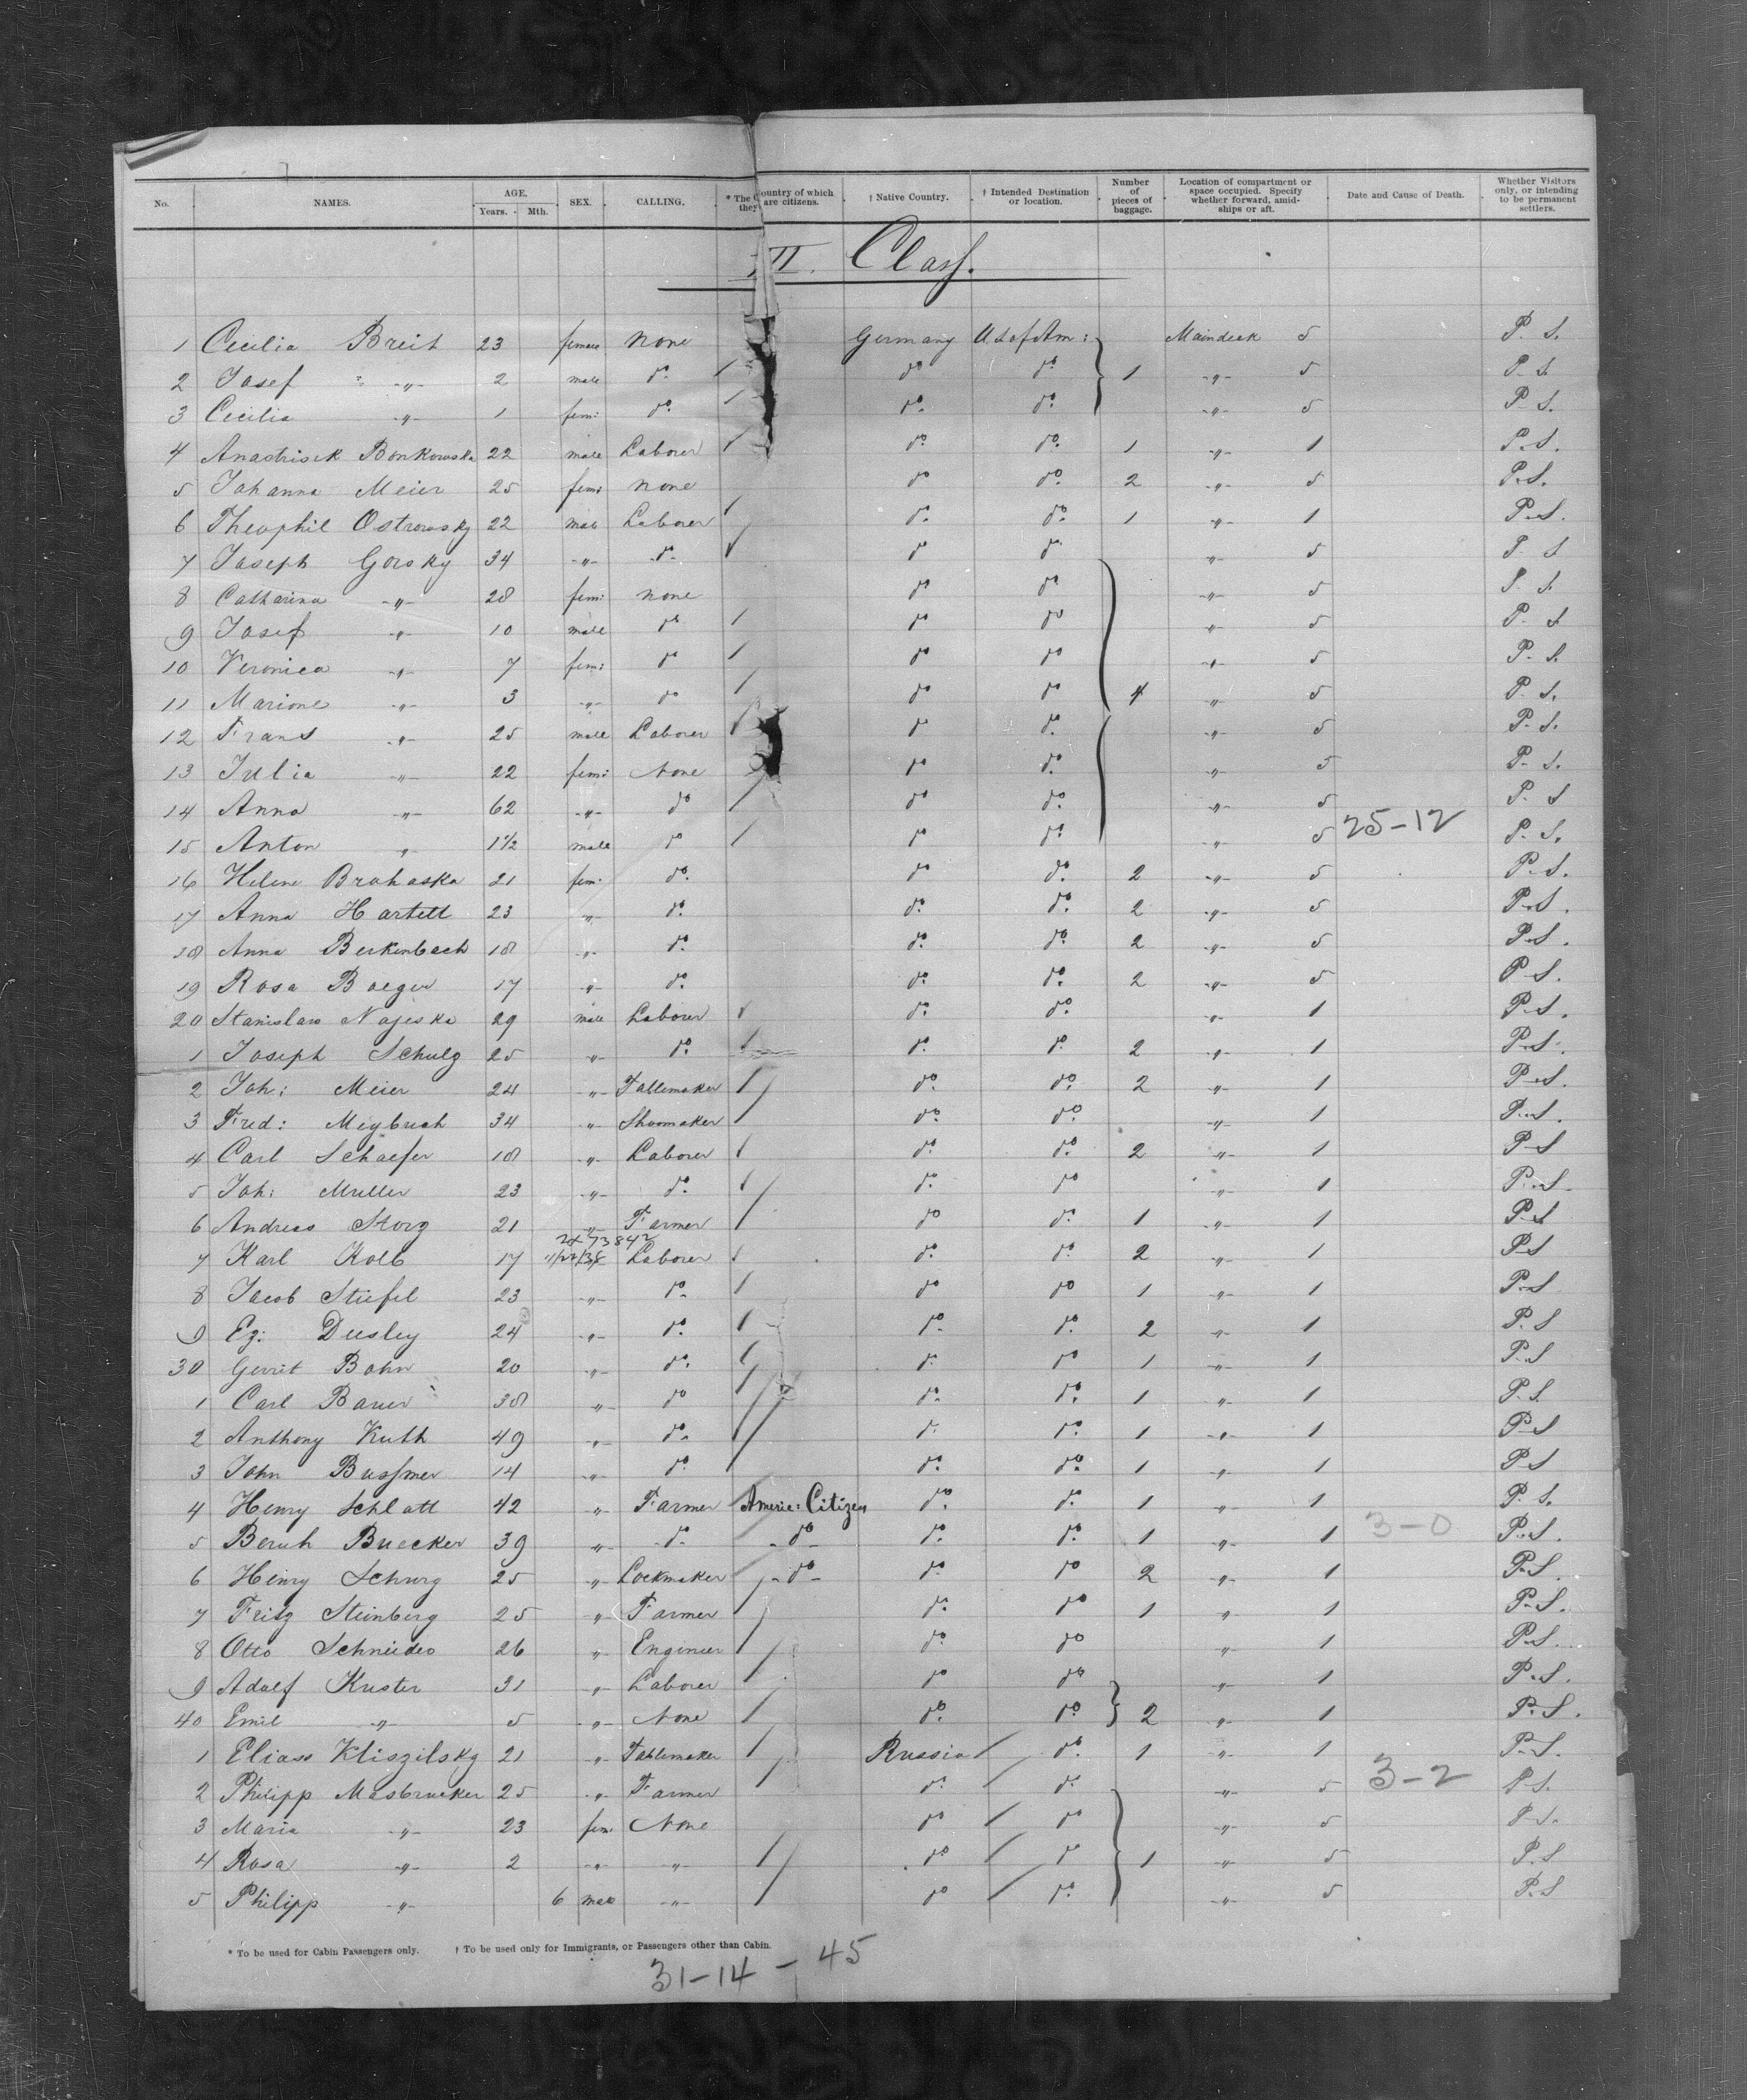 No. NAMES. AGE. Years. Mth. SEX. CALLING. * The Country of which they are citizens. † Native Country. † Intended Destination or location. Number of pieces of baggage. Location of compartment or space occupied. Specify whether forward, amidships or aft. Date and Cause of Death. Whether Visitors only, or intending to be permanent settlers.
II. Class.
1 Cecilia Breit 23 female None Germany U S of Am: Maindeck 5 P. S.
2 Josef -"- 2 male do. do do 1 -"- 5 P. S.
3 Cecilia -"- 1 fem: do. do. do. -"- 5 P. S.
4 Bonkowska 22 male Laborer do. do. 1 -"- 1 P. S.
5 Johanna Meier 25 fem: None do do. 2 -"- 5 P. S.
6 Theophil Ostrowsky 22 male Laborer do. do. 1 -"- 1 P. S.
7 Joseph Gorsky 34 -"- do. do do -"- 5 P. S
8 Catharina -"- 28 fem: None do do -"- 5 S. S.
9 Josef -"- 10 male do do do -"- 5 P. S
10 Veronica -"- 7 fem: do do do -"- 5 P. S.
11 Marione -"- 3 -"- do do do 4 -"- 5 P. S.
12 Frans -"- 25 male Laborer do do. -"- 5 P. S.
13 Julia -"- 22 fem: None do do. -"- 5 P. S.
14 Anna -"- 62 -"- do do do. -"- 5 P. S
15 Anton -"- 1½ male do do do. -"- 5 25-12 P. S.
16 Helene Brohaska 21 fem: do. do do. 2 -"- 5 P. S.
17 Anna Hartell 23 -"- do. do. do. 2 -"- 5 P. S.
18 Anna Berkenbach 18 -"- do. do. do. 2 -"- 5 P. S.
19 Rosa Boeger 17 -"- do. do. do. 2 -"- 5 P. S.
20 Stanislaw Najeska 29 male Laborer do. do. -"- 1 P. S.
1 Joseph Schulz 25 -"- do. do. do 2 -"- 1 P. S.
2 Joh: Meier 24 -"- Tablemaker do. do. 2 -"- 1 P. S.
3 Fred: Meybush 34 -"- Shoomaker do. do. -"- 1 P. S.
4 Carl Schaefer 18 -"- Laborer do. do. 2 -"- 1 P S
5 Joh: Muller 23 -"- do. do. do -"- 1 P. S.
6 Andreas Storz 21 -"- Farmer do do. 1 -"- 1 P. S
2x 73842
7 Karl Kolb 17 11/22/38 Laborer do. do. 2 -"- 1 P S
8 Jacob Stiefel 23 -"- do. do do 1 -"- 1 P. S
9 Eg: Deesley 24 -"- do. do. do. 2 -"- 1 P. S
30 Gerrit Bohn 20 -"- do. do. do 1 -"- 1 P. S
1 Carl Bauer 38 -"- do do. do. 1 -"- 1 P. S
2 Anthony Kuth 49 -"- do. do. do. 1 -"- 1 P S
3 John Bussmer 14 -"- do. do. do. 1 -"- 1 P S
4 Henry Schlatt 42 -"- Farmer Americ: Citizen do. do. 1 -"- 1 P. S.
5 Beruh Buecker 39 -"- do. -do- do. do. 1 -"- 1 3-0 P. S.
6 Henry Schurg 25 -"- Lockmaker -do- do. do 2 -"- 1 P. S.
7 Fritz Steinberg 25 -"- Farmer do. do 1 -"- 1 P. S.
8 Otto Schneider 26 -"- Engineer do. do -"- 1 P. S.
9 Adolf Kuster 31 -"- Laborer do do -"- 1 P. S.
40 Emil -"- 5 -"- None do. do 2 -"- 1 P. S.
1 Eliass Kliszilsky 21 -"- Tablemaker Russia do. 1 -"- 1 P. S.
2 Philipp Masbrucker 25 -"- Farmer do. do. -"- 5 3-2 P. S.
3 Maria -"- 23 fem. None do do -"- 5 P. S.
4 Rosa -"- 2 -"- -"- do do 1 -"- 5 P. S
5 Philipp -"- 6 male -"- do do. -"- 5 P. S
* To be used for Cabin Passengers only. † To be used only for Immigrants, or Passengers other than Cabin.
31-14 - 45